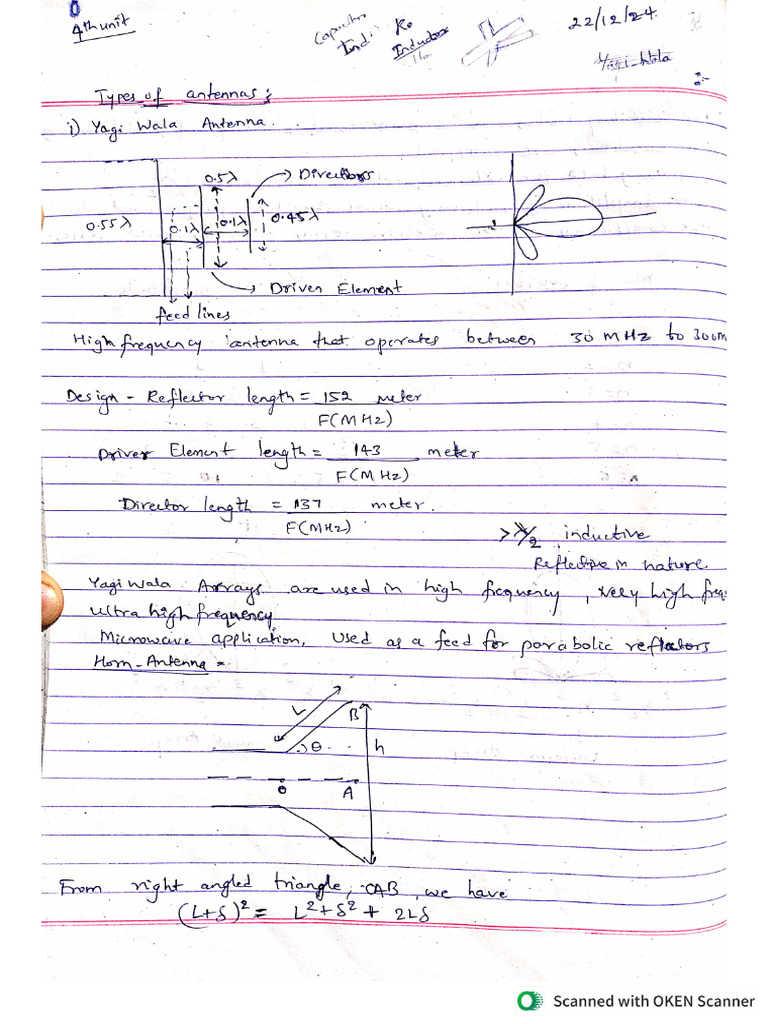 4th unit
Capacitor
Ind.
Re
Inductor
22/12/24
Yagi-Wala
Types of antennas:
i) Yagi Wala Antenna.
0.5λ
Directors
0.55λ
0.1λ
0.1λ
0.45λ
Driven Element
feed lines
High frequency antenna that operates between 30 MHz to 300m
Design - Reflector length = 152 meter
F(MHz)
Driver Element length = 143 meter
F(MHz)
Director length = 137 meter.
F(MHz)
> λ/2 inductive
Reflective in nature.
Yagi Wala Arrays are used in high frequency, very high freq
Ultra high frequency
Microwave application, Used as a feed for parabolic reflectors
Horn-Antenna =
L
B
θ
h
O
A
From right angled triangle, OAB, we have
(L+δ)² = L²+δ²+ 2Lδ
Scanned with OKEN Scanner